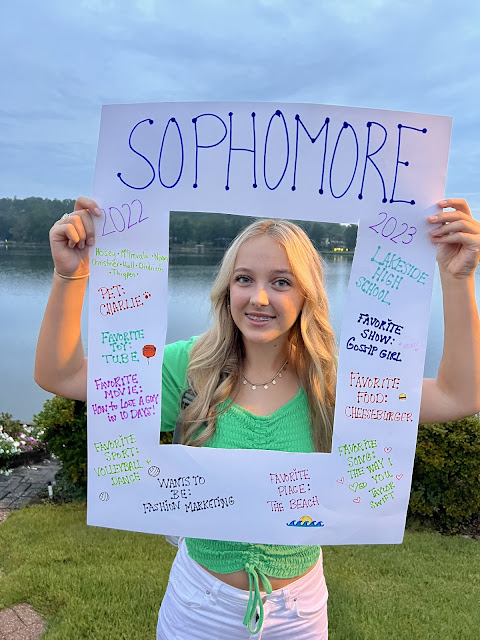 SOPHOMORE
2022
2023
PET:
CHARLIE
FAVORITE
TOY:
TUBE
FAVORITE
MOVIE:
HOW TO LOSE A GUY
IN 10 DAYS!
FAVORITE
SPORT:
VOLLEYBALL
DANCE
WANTS TO
BE:
FASHION MARKETING
FAVORITE
PLACE:
THE BEACH
LAKESIDE
HIGH
SCHOOL
FAVORITE
SHOW:
GOSSIP GIRL
FAVORITE
FOOD:
CHEESEBURGER
FAVORITE
SONG:
THE WAY I
YOU
TAYLOR
SWIFT